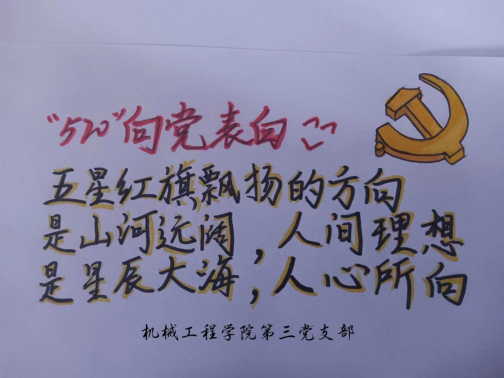 “520”向党表白
五星红旗飘扬的方向
是山河远阔，人间理想
是星辰大海，人心所向
机械工程学院第三党支部